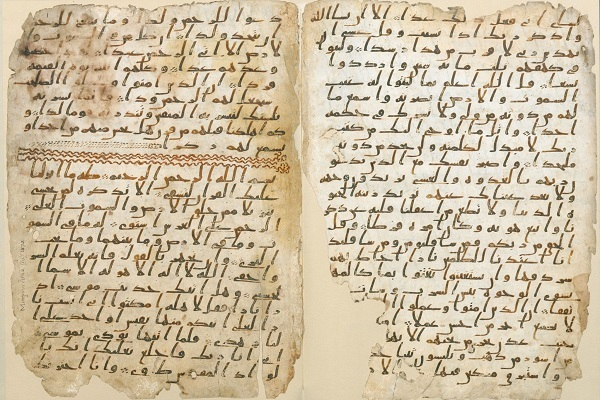 شاي اني فعل ذلك غدا الا ان يشا الله
واذكر ربك اذا نسيت وقل عسى ان
يهدين ربي لاقرب من هذا رشدا ولبثوا
في كهفهم ثلث مائة سنين وازدادوا
تسعا قل الله اعلم بما لبثوا له غيب
السموت والارض ابصر به واسمع ما
لهم من دونه من ولي ولا يشرك في حكمه
احدا واتل ما اوحي اليك من كتب
ربك لا مبدل لكلمته ولن تجد من دونه
ملتحدا واصبر نفسك مع الذين يدعون
ربهم بالغدوة والعشي يريدون وجهه
ولا تعد عينك عنهم تريد زينة الحيو
ة الدنيا ولا تطع من اغفلنا قلبه عن ذكر
نا واتبع هويه وكان امره فرطا وقل
الحق من ربكم فمن شا فليومن ومن شا فليكفر
انا اعتدنا للظلمين نارا احاط بهم
سردقها وان يستغيثوا يغثوا بما كالمهل
يشوي الوجوه بئس الشراب وسات مر
تفقا ان الذين امنوا وعملوا
لا نضيع اجر من احسن عملا
جنت عدن تجري من تحتهم الانهر
من اسور من ذهب ويلبسون ثيابا
واستبرق متكين فيها على الا
دعوا للرحمن ولدا وما ينبغي للر
حمن ان يتخذ ولدا ان كل من في السموت و
الارض الا اتي الرحمن عبدا لقد احصيهم
وعدهم عدا وكلهم اتيه يوم القيمة
فردا ان الذين امنوا وعملوا الصلحت
سيجعل لهم الرحمن ودا فانما يسرنه
بلسنك لتبشر به المتقين وتنذر به قوما لدا و
كم اهلكنا قبلهم من قرن هل تحس منهم من احد او
تسمع لهم ركزا
بسم الله الرحمن الرحيم طه ما انزلنا
عليك القرن لتشقى الا تذكرة لمن يخشى
تنزيلا ممن خلق الارض والسموت العلى
الرحمن على العرش استوى له ما في السمو
ت وما في الارض وما بينهما وما تحت
الثرى وان تجهر بالقول فانه يعلم السر
واخفى الله لا اله الا هو له الاسما
الحسنى وهل اتيك حديث موسى اذ
را نارا فقل لاهله امكثوا اني انست نا
را لعلي اتيكم منها بقبس او اجد على ا
لنار هدى فلما اتيها نودي يموسى
اني انا ربك فاخلع نعليك انك با
لواد المقدس طوى وانا اخترتك